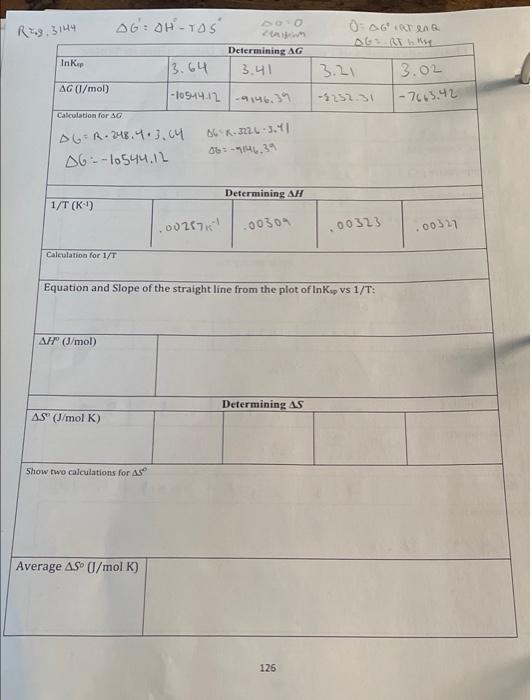 R=8.3144 ΔG°=ΔH°-TΔS° ΔG=0 0=ΔG°+RT ln Q
ΔG=-RT ln Ksp
Determining ΔG
lnKsp 3.64 3.41 3.21 3.02
ΔG (J/mol) -10544.12 -9146.39 -8252.31 -7663.42
Calculation for ΔG
ΔG=R·348.4·3.64 ΔG=R·322.6·3.41
ΔG=-10544.12 ΔG=-9146.39
Determining ΔH
1/T (K-1) .00287K-1 .00309 .00323 .00327
Calculation for 1/T
Equation and Slope of the straight line from the plot of lnKsp vs 1/T:
ΔHº (J/mol)
Determining ΔS
ΔSº (J/mol K)
Show two calculations for ΔSº
Average ΔSº (J/mol K)
126